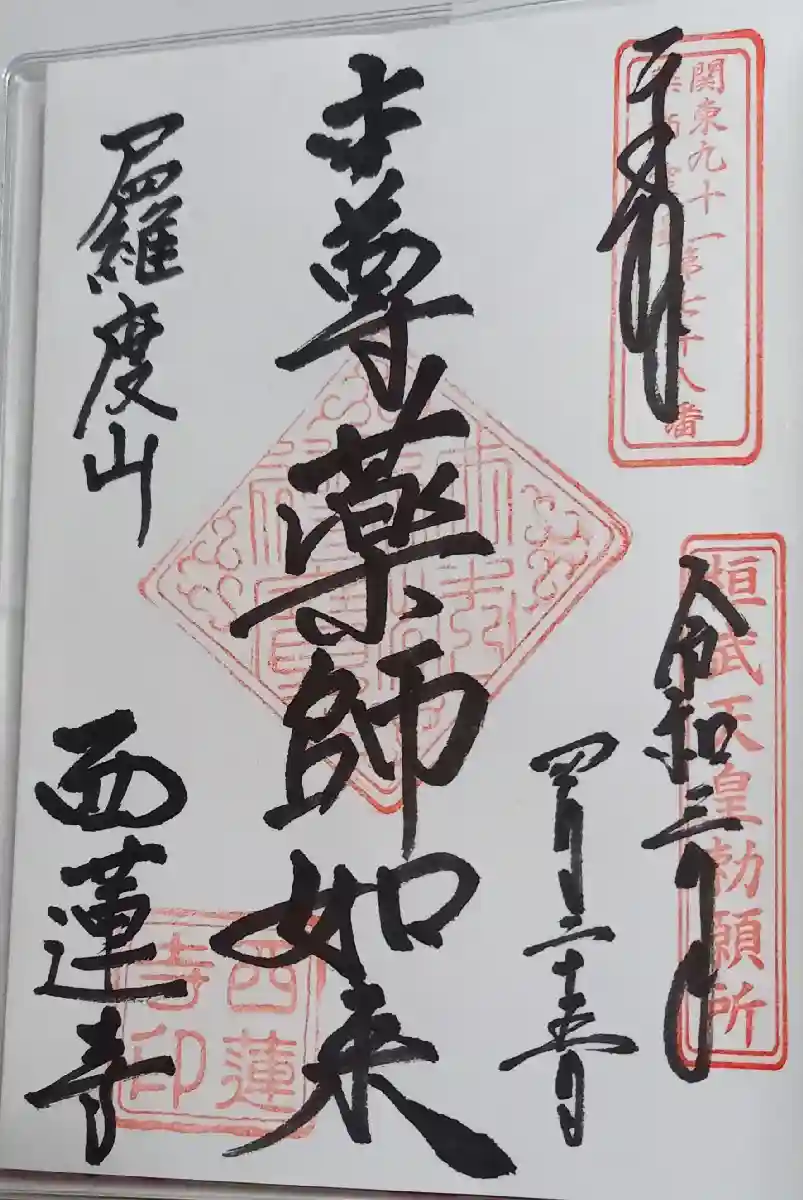 奉拝
関東九十一
第七十八番
桓武天皇勅願所
令和三年
四月二十五日
本尊薬師如来
尸羅度山
西蓮寺
西蓮寺印